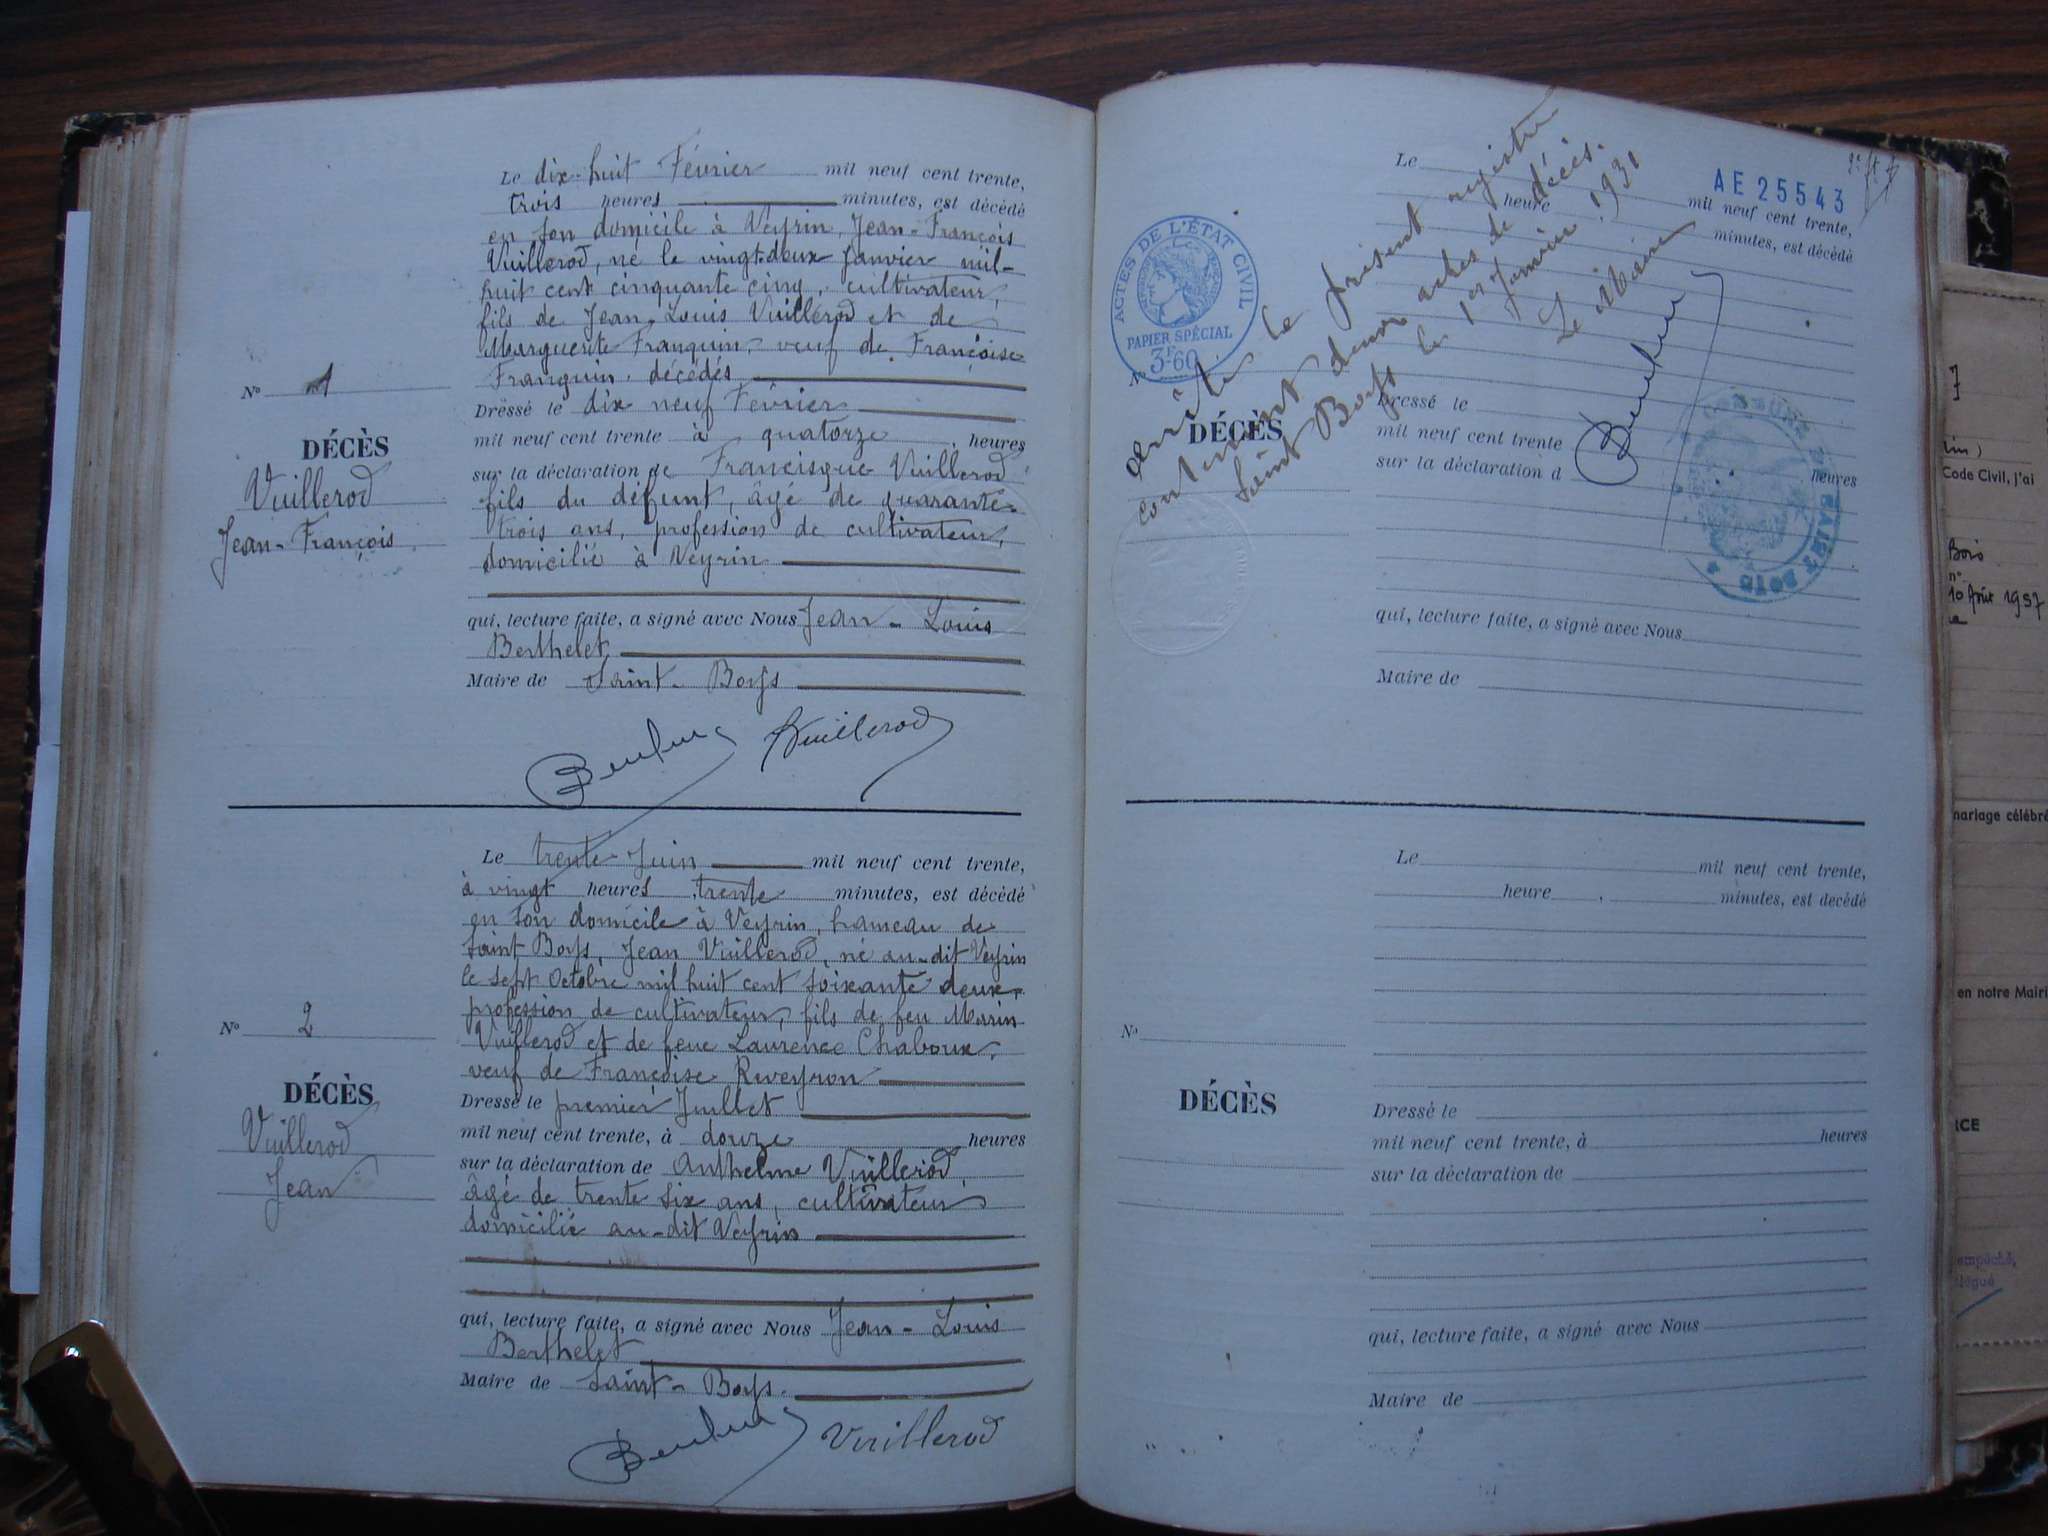 Le dix-huit Février mil neuf cent trente,
trois heures minutes, est décédé
en son domicile à Veyrin, Jean-François
Vuillerod, né le vingt-deux Janvier mil-
huit cent cinquante cinq, cultivateur,
fils de Jean-Louis Vuillerod et de
Marguerite Franquin, veuf de Françoise
Franquin, décédés
N° 1
DÉCÈS
Vuillerod
Jean-François
Dressé le dix neuf Février
mil neuf cent trente à quatorze, heures
sur la déclaration de Francisque Vuillerod
fils du défunt, âgé de quarante-
trois ans, profession de cultivateur,
domicilié à Veyrin
qui, lecture faite, a signé avec Nous Jean-Louis
Berthelet
Maire de Saint-Boys
Vuillerod
Le trente Juin mil neuf cent trente,
à vingt heures trente minutes, est décédé
en son domicile à Veyrin, hameau de
Saint Boys, Jean Vuillerod, né au-dit Veyrin
le sept Octobre mil huit cent soixante deux,
profession de cultivateur, fils de feu Marin
Vuillerod et de feue Laurence Chaboux,
veuf de Françoise Reveyron
N° 2
DÉCÈS
Vuillerod
Jean
Dressé le premier Juillet
mil neuf cent trente, à douze heures
sur la déclaration de Anthelme Vuillerod,
âgé de trente six ans, cultivateur
domicilié au-dit Veyrin
qui, lecture faite, a signé avec Nous Jean-Louis
Berthelet
Maire de Saint-Boys.
Vuillerod
AE 25543
Le mil neuf cent trente,
heure minutes, est décédé
ACTES DE L'ÉTAT CIVIL
PAPIER SPÉCIAL
3F60
Arrêté le présent registre
contenant deux actes de décès.
Saint Boys le 1er Janvier 1931
Le Maire
COMMUNE DE SAINT BOIS
N°
DÉCÈS
Dressé le
mil neuf cent trente heures
sur la déclaration d
qui, lecture faite, a signé avec Nous
Maire de
Le mil neuf cent trente,
heure , minutes, est decédé
N°
DÉCÈS
Dressé le
mil neuf cent trente, à heures
sur la déclaration de
qui, lecture faite, a signé avec Nous
Maire de
Code Civil, j'ai
Bois
n°
10 Août 1957
mariage célébré
en notre Mairi
RCE
empêché,
légué